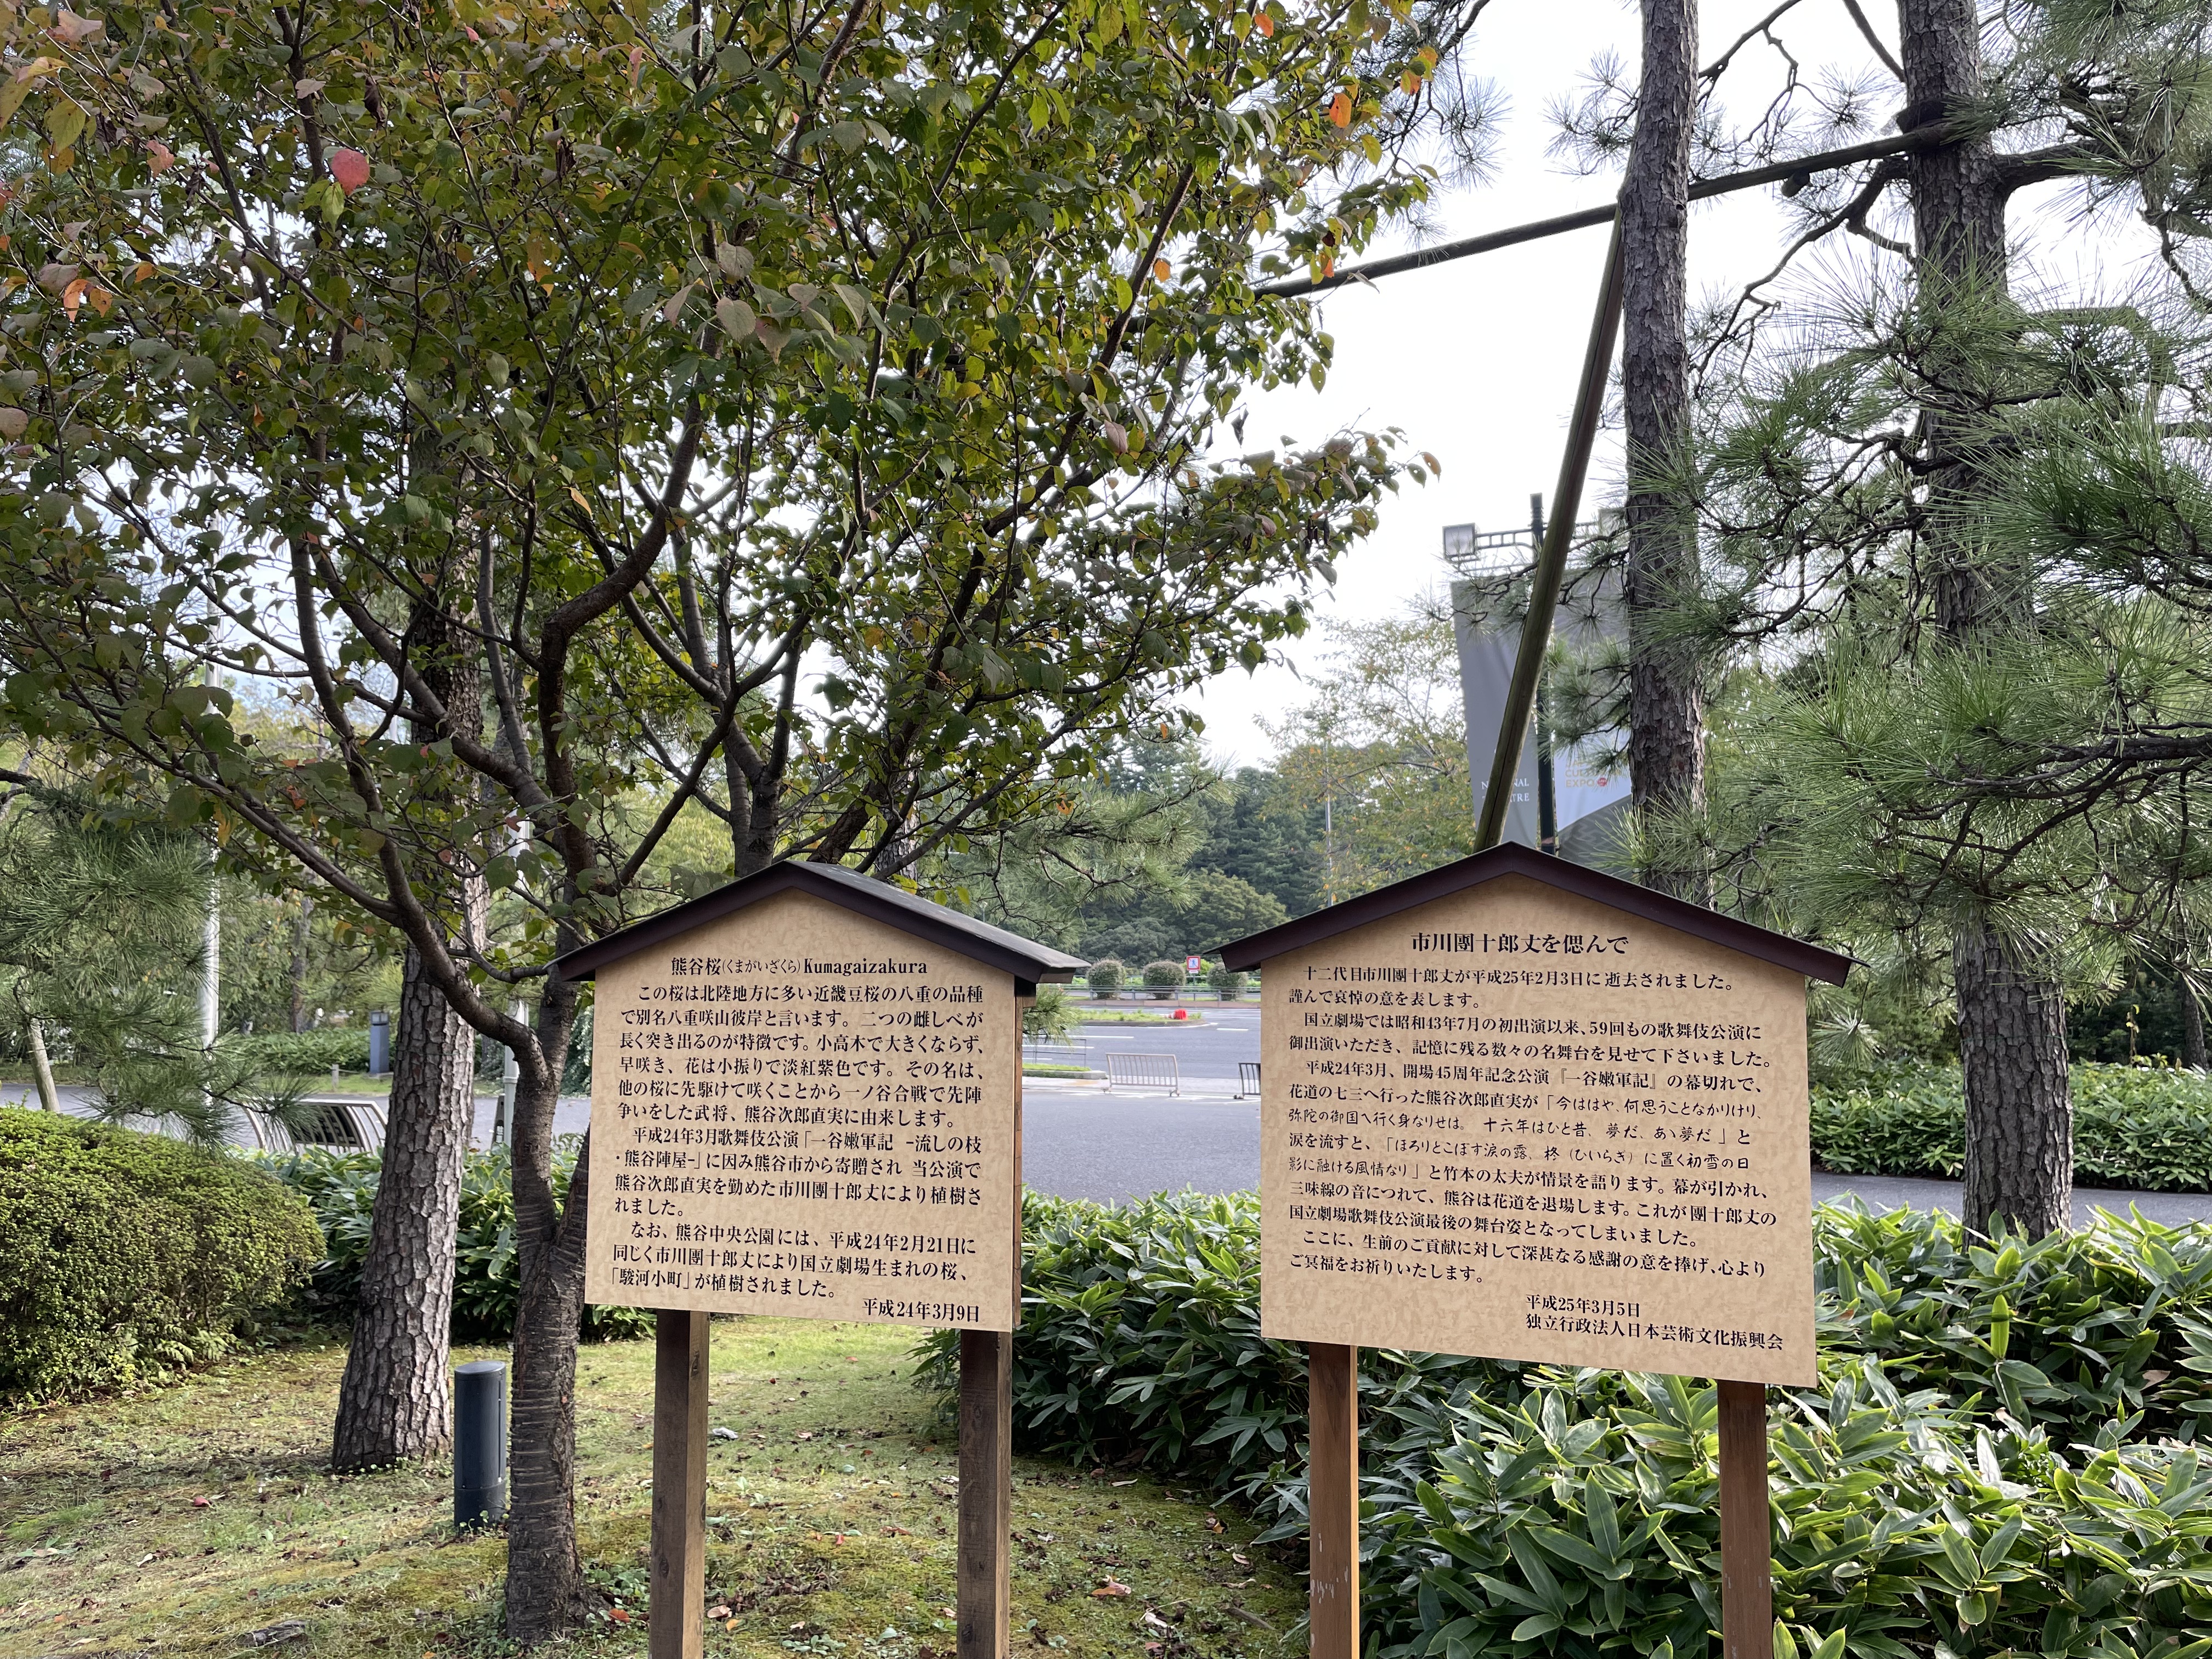 熊谷桜(くまがいざくら)Kumagaizakura
この桜は北陸地方に多い近畿豆桜の八重の品種
で別名八重咲山彼岸と言います。二つの雌しべが
長く突き出るのが特徴です。小高木で大きくならず、
早咲き、花は小振りで淡紅紫色です。その名は、
他の桜に先駆けて咲くことから一ノ谷合戦で先陣
争いをした武将、熊谷次郎直実に由来します。
平成24年3月歌舞伎公演「一谷嫩軍記 －流しの枝
・熊谷陣屋－」に因み熊谷市から寄贈され 当公演で
熊谷次郎直実を勤めた市川團十郎丈により植樹さ
れました。
なお、熊谷中央公園には、平成24年2月21日に
同じく市川團十郎丈により国立劇場生まれの桜、
「駿河小町」が植樹されました。
平成24年3月9日
市川團十郎丈を偲んで
十二代目市川團十郎丈が平成25年2月3日に逝去されました。
謹んで哀悼の意を表します。
国立劇場では昭和43年7月の初出演以来、59回もの歌舞伎公演に
御出演いただき、記憶に残る数々の名舞台を見せて下さいました。
平成24年3月、開場45周年記念公演『一谷嫩軍記』の幕切れで、
花道の七三へ行った熊谷次郎直実が「今ははや、何思うことなかりけり、
弥陀の御国へ行く身なりせば。 十六年はひと昔、夢だ、あゝ夢だ」と
涙を流すと、「ほろりとこぼす涙の露、柊（ひいらぎ）に置く初雪の日
影に融ける風情なり」と竹本の太夫が情景を語ります。幕が引かれ、
三味線の音につれて、熊谷は花道を退場します。これが團十郎丈の
国立劇場歌舞伎公演最後の舞台姿となってしまいました。
ここに、生前のご貢献に対して深甚なる感謝の意を捧げ、心より
ご冥福をお祈りいたします。
平成25年3月5日
独立行政法人日本芸術文化振興会
EXPO